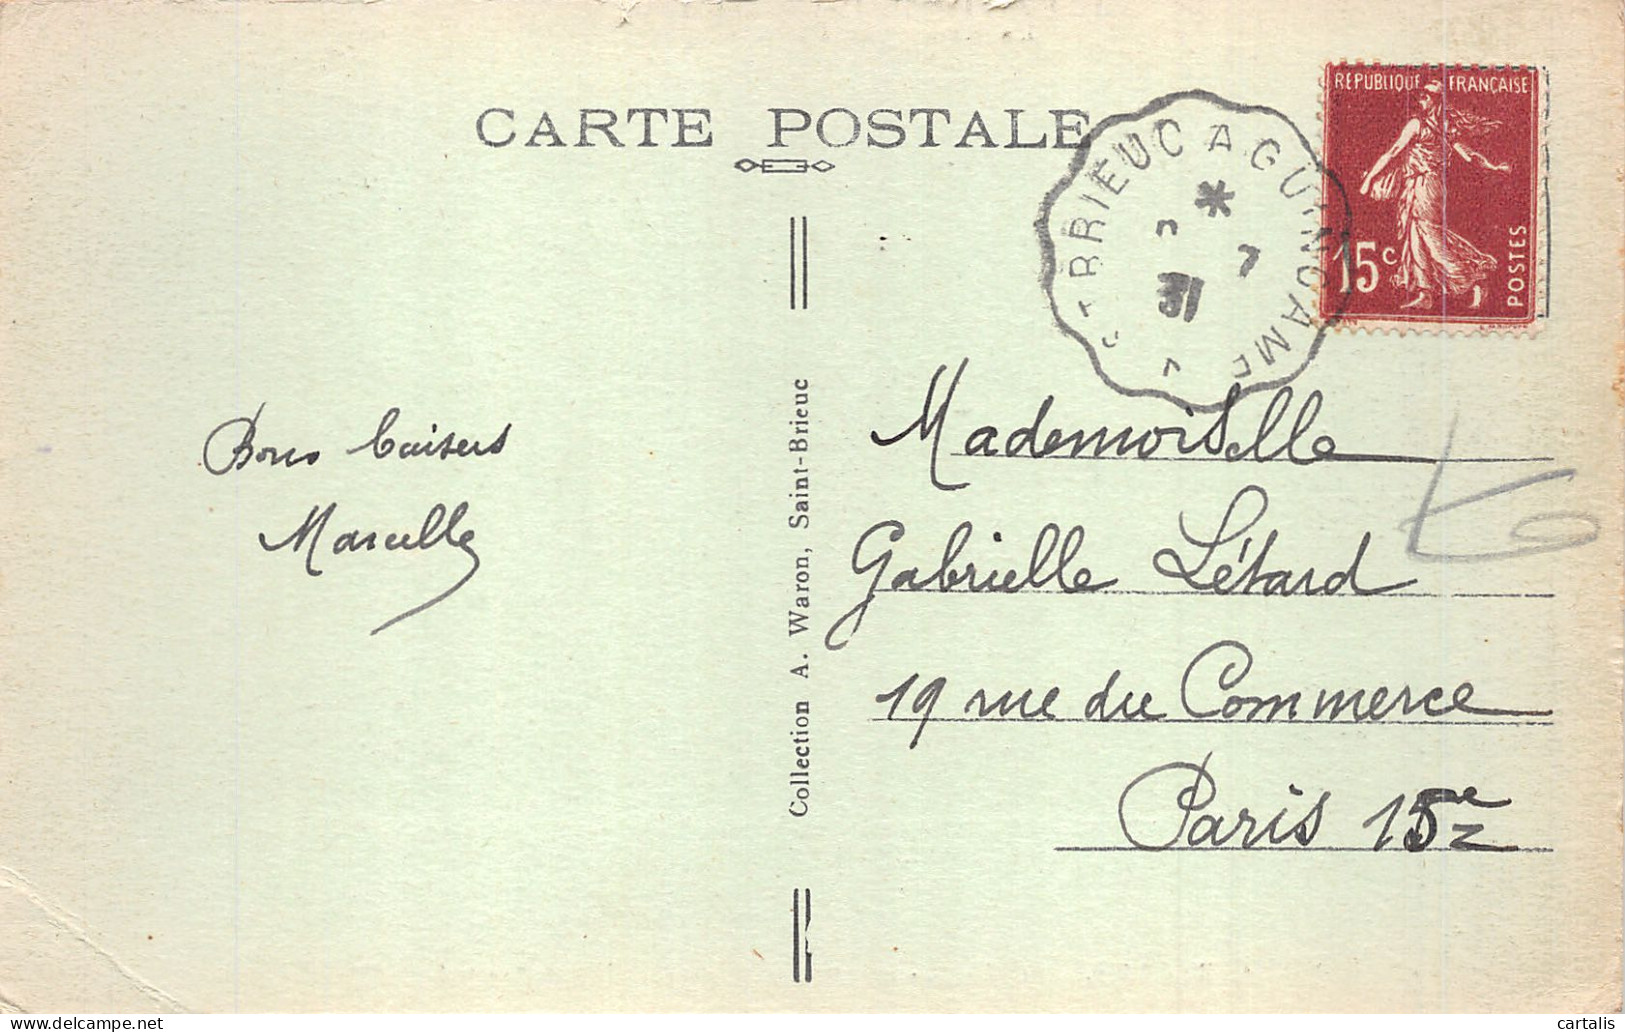 CARTE POSTALE
REPUBLIQUE FRANÇAISE
15c
POSTES
ST BRIEUC A GUINGAMP
*
7
31
Bons baisers
Marcelle
Collection A. Waron, Saint-Brieuc
Mademoiselle
Gabrielle Létard
19 rue du Commerce
Paris 15e
cartalis